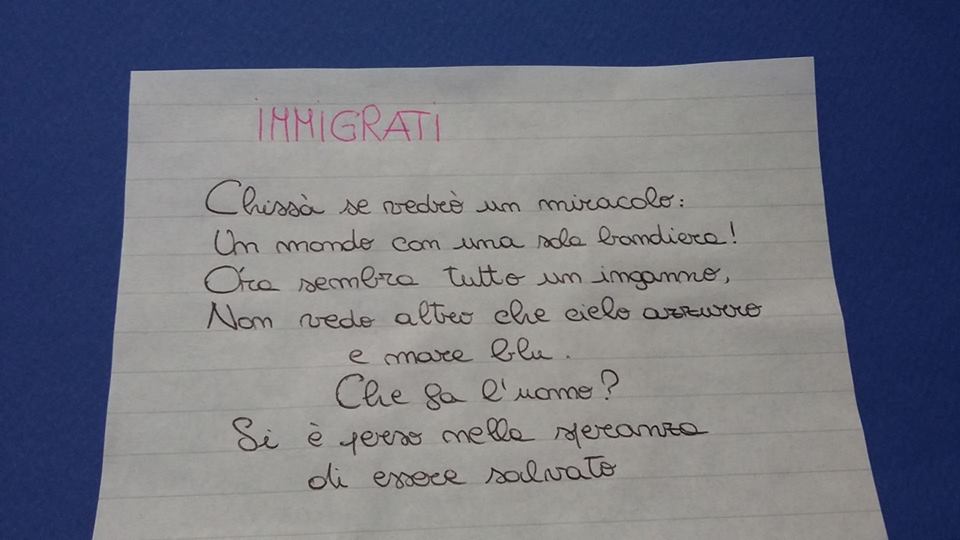 IMMIGRATI
Chissà se vedrò un miracolo:
Un mondo con una sola bandiera!
Ora sembra tutto un inganno,
Non vedo altro che cielo azzurro
e mare blu.
Che fa l'uomo?
Si è perso nella speranza
di essere salvato